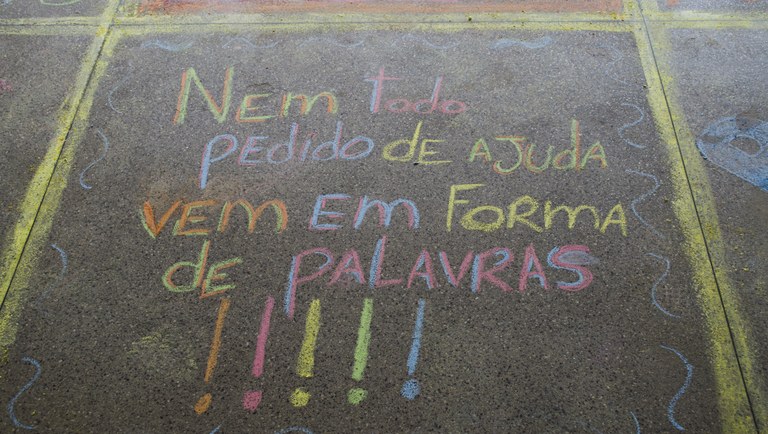 Nem todo
pedido de ajuda
vem em forma
de palavras
!!!!!